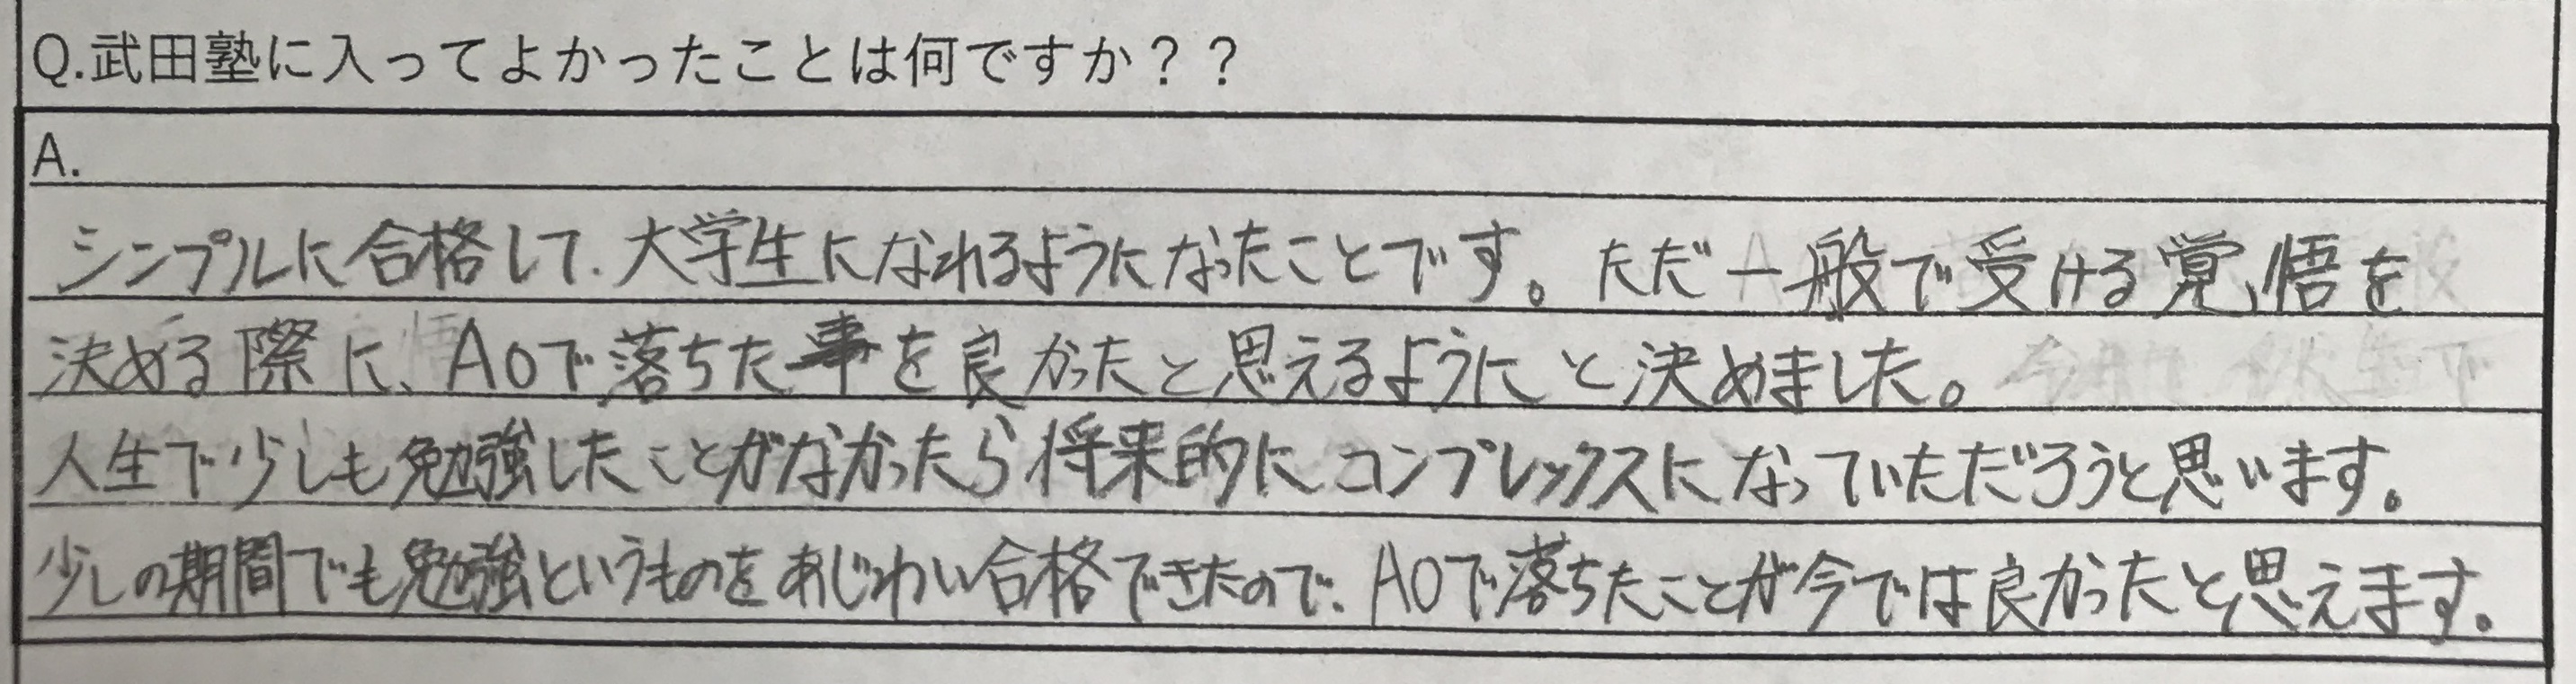 Q.武田塾に入ってよかったことは何ですか？？
A.
シンプルに合格して、大学生になれるようになったことです。ただ一般で受ける覚悟を
決める際に、AOで落ちた事を良かったと思えるようにと決めました。
人生で少しも勉強したことがなかったら将来的にコンプレックスになっていただろうと思います。
少しの期間でも勉強というものをあじわい合格できたので、AOで落ちたことが今では良かったと思えます。